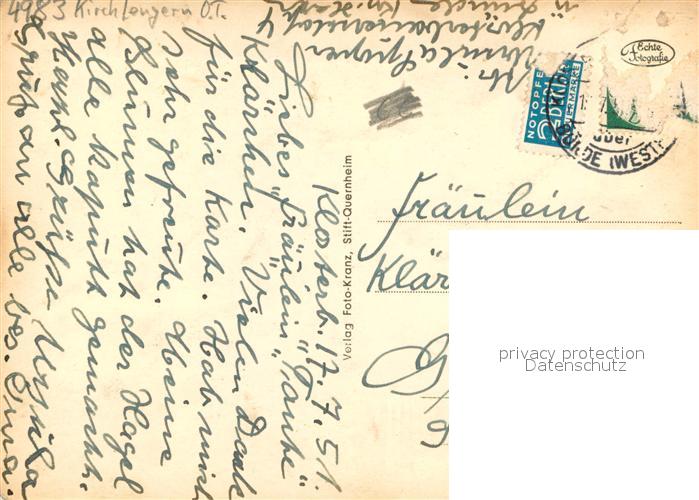 4983 Kirchlengern O.T.
Klosterb. 17.7.51.
Liebes "Fräulein" Tante"
Klärchen. Vielen Dank
für die Karte. Hab mich
sehr gefreut. Meine
Blumen hat der Hagel
alle kaputt gemacht.
Herzl. Grüße Ursula
Gruß an alle bes. Oma.
Verlag Foto-Kranz, Stift-Quernheim
Echte
Fotografie
NOTOPFER
2 BERLIN
STEUERMARKE
über
BÜNDE (WESTF
Fräulein
Klär
privacy protection
Datenschutz